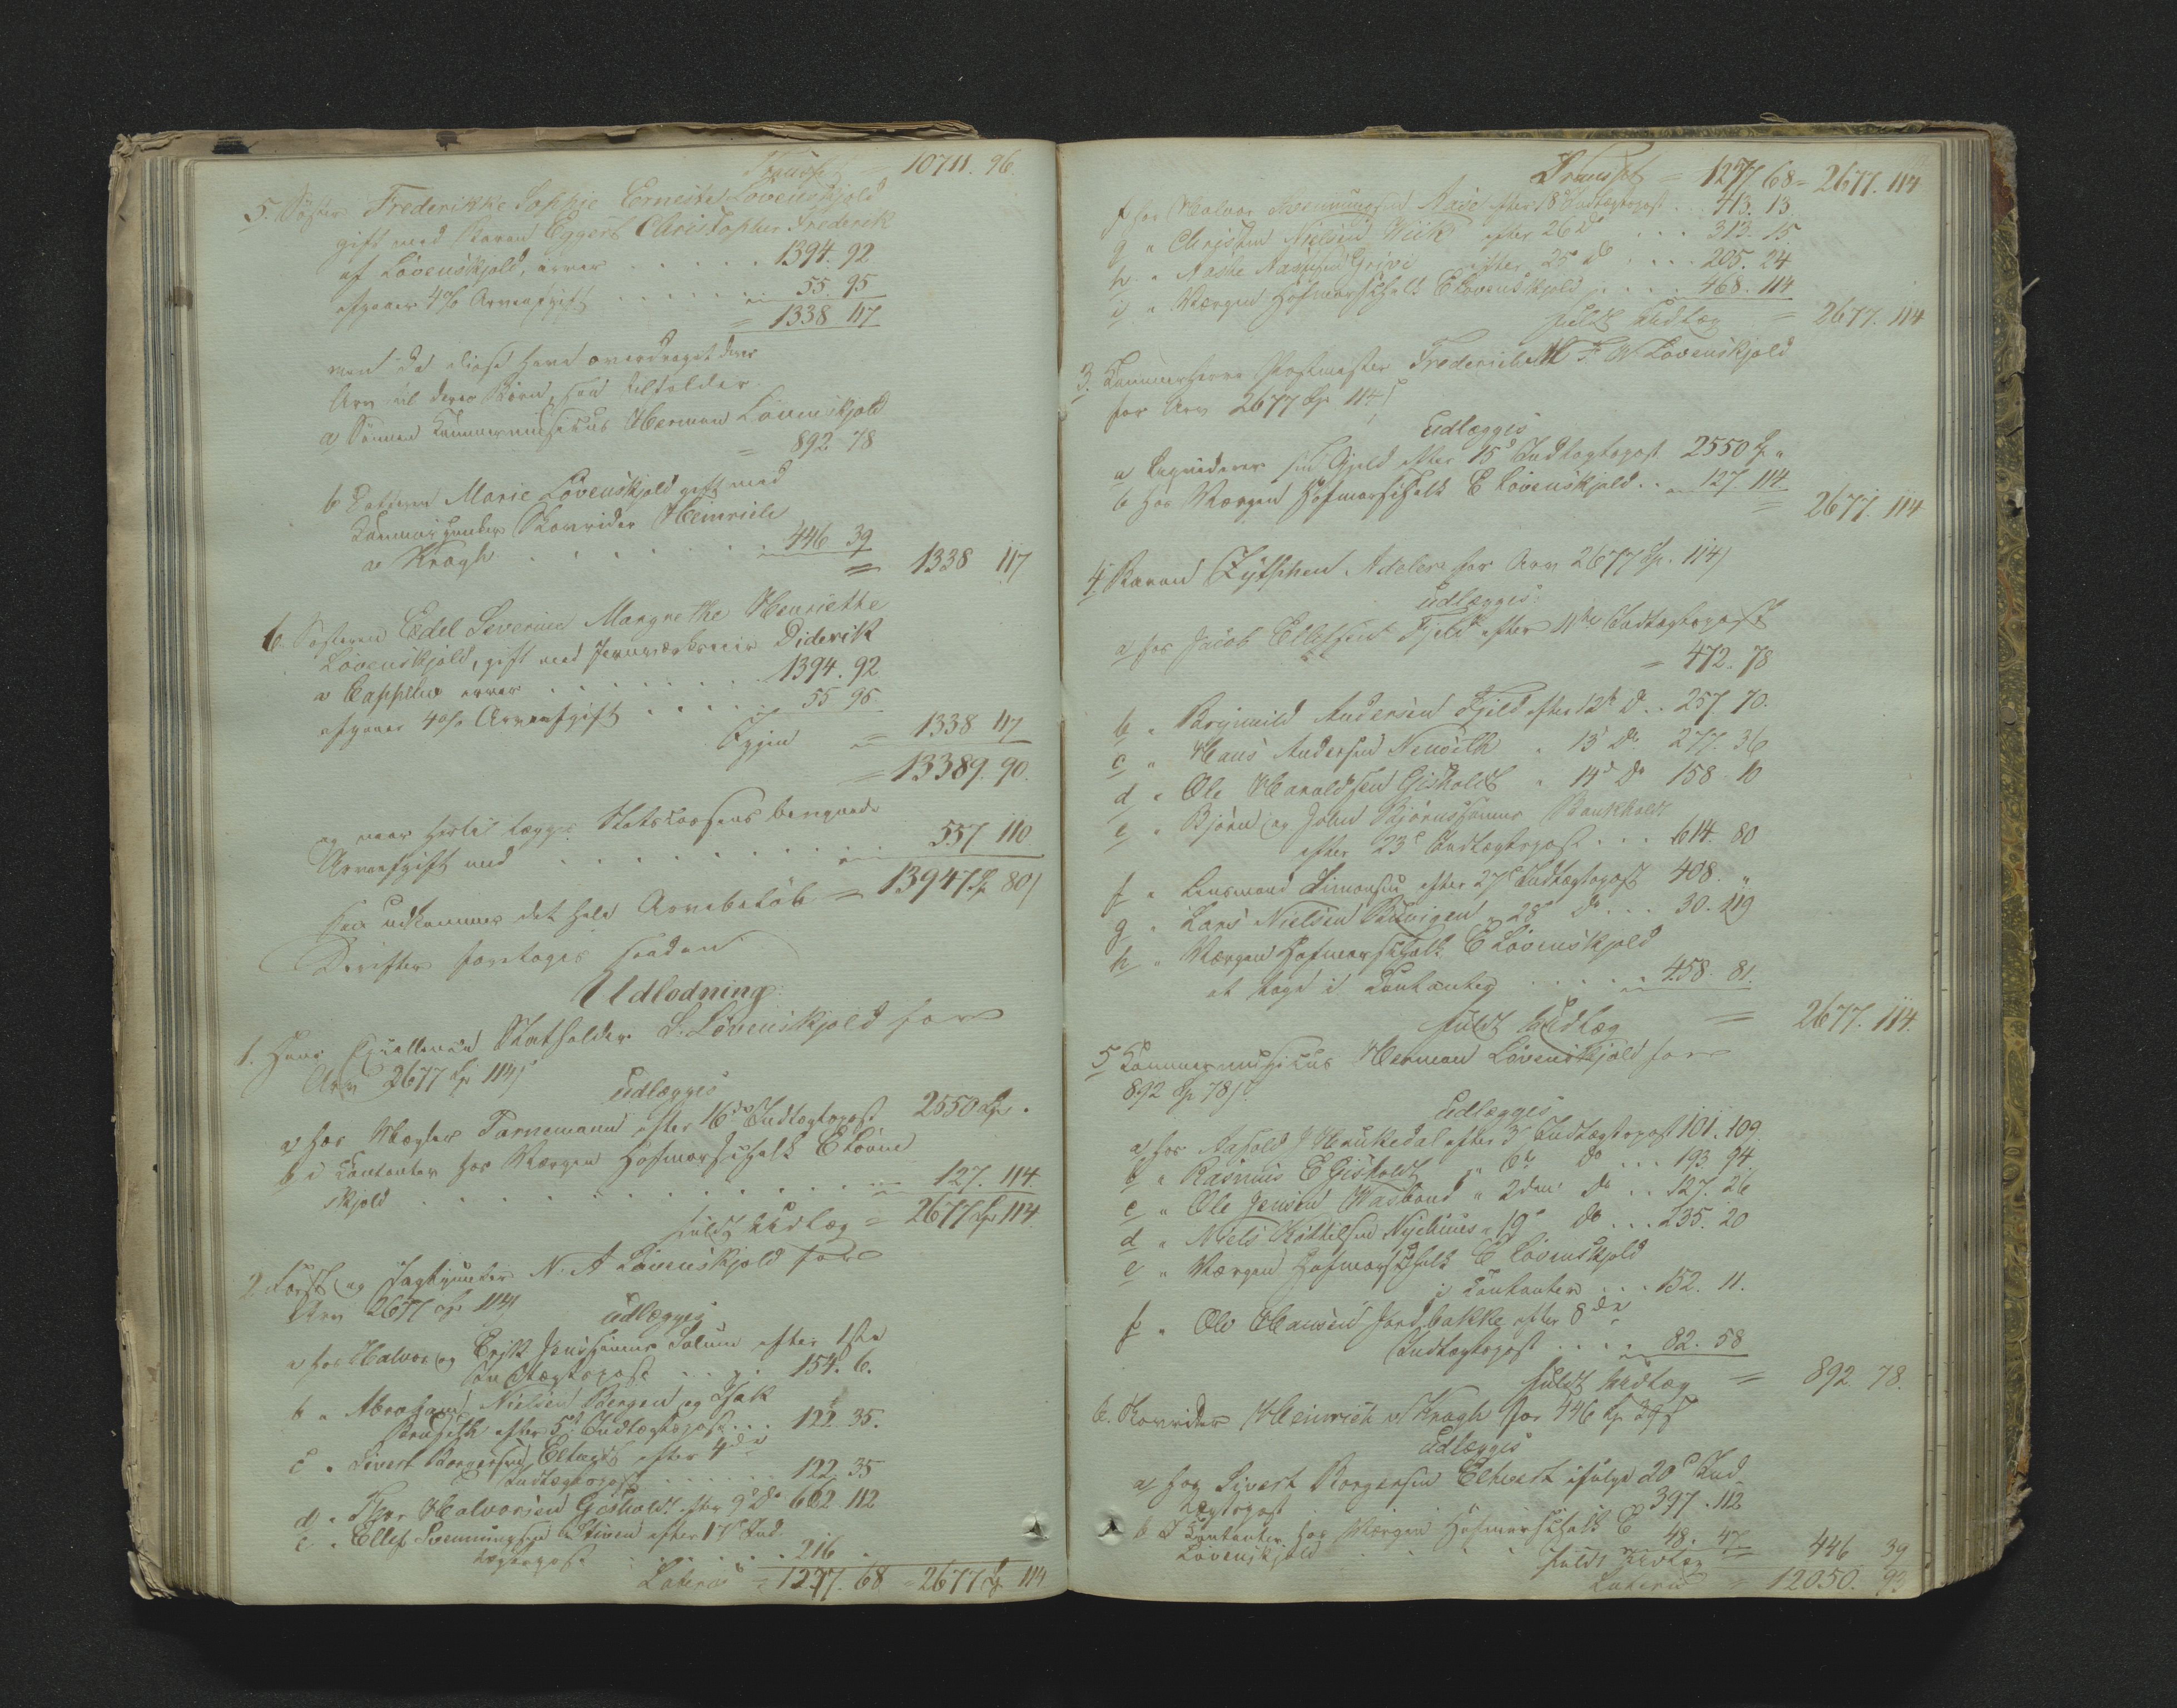 Transpt = 10711. 96.
5. Søster Frederikke Sophie Ernesta Løvenskjold
gift med Baron Eggert Christopher Frederik
af Løvenskjold, arver . . . . . 1394. 92
afgaaer 4% Arveafgift . . . . . 55. 95
= 1338 117
men da disse have overdraget deres
Arv til deres Børn, saa tilfalder
a Sønnen Kammermusikus Herman Løvenskjold
= 892 78
b Datteren Marie Løvenskjold gift med
Kammerjunker Skovrider Heinrich
v Krogh . . . . . . 446 39
= 1338 117
6. Søsteren Edel Severine Margrethe Henriette
Løvenskjold, gift med Jernværkseier Diderik
v Cappelen arver . . . . . . 1394. 92
afgaaer 4 o/o Arveafgift . . . . 55 95
Igjen = 1338 117
= 13389. 90.
og naar hertil lægges Statskassens beregnede
Arveafgift med . . . . . . . . 557 110
saa udkommer det hele Arvebeløb = 13947 Sp 80 s
Derefter foretoges saadan
Udlodning:
1. Hans Excellence Statholder S. Løvenskjold for
Arv 2677 Sp 114 s
udlægges
a hos Mægler Parnemann efter 16de Indtægtspost 2550 Sp „
b i Kontanter hos Værgen Hofmarschalk E Løven
skjold . . . . . . . . . 127. 114.
fuldt Udlæg = 2677 Sp 114
2. Forst og Jagtjunker N. A Løvenskjold for
Arv 2677 Sp 114 s
udlægges
a hos Halvor og Erik Jenssønner Solum efter 1ste
Indtægtspost . . . 154. 6.
b „ Abraham Nielsen Bergen og Isak
efter 5te Indtægtspost . . 122. 35.
c „ Sivert Borgersen Eltvedt efter 4de
Indtægtspost . . . . . . 122. 35
d „ Thor Halvorsen Gisholdt efter 9de Do 662 112
e „ Ellef Svenningsen efter 17de Ind-
tægtspost . . . . . . 216 „
Lateris = 1277. 68 = 2677 Sp 114
Transpt = 1277. 68 = 2677. 114
f hos Halvor Svenningsen Aase efter 18de Indtægtspost . . 413. 13
g „ Christen Nielsen Wiik efter 26 Do . . . 313. 15
h „ Aashe Aassen Grivi efter 25 Do . . . . 205. 24
i „ Værgen Hofmarschalk E Løvenskjold . . . . 468. 114
fuldt Udlæg = 2677. 114
3. Kammerherre Postmester Frederich F. W Løvenskjold
for Arv 2677 Sp 114 s
udlægges
a Liqviderer sin Gjeld efter 15de Indtægtspost 2550 Sp „
b hos Værgen Hofmarschalk E Løvenskjold . . 127 114
= 2677. 114
4. Baron Zytphen Adeler for Arv 2677 Sp. 114 s
udlægges
a hos Jacob Ellefsen Fjeld efter 11te Indtægtspost
= 472. 78
b „ Brynnild Andersen Fjeld efter 12te Do . . 257. 70.
c „ Hans Andersen Nenseth „ 13de Do 277. 36
d „ Ole Haraldsen Gisholdt „ 14de Do 158. 10
e „ Bjørn og John Bjørnssønner Baukhold
efter 23de Indtægtspost . . . 614. 80
f „ Lensmand Simonsen efter 27de Indtægtspost 408. „
g „ Lars Nielsen „ 28 Do . . . 30. 119
h „ Værgen Hofmarschalk E Løvenskjold
at tage i Kontanter . . . . 458. 81.
fuldt Udlæg = 2677. 114.
5 Kammermusikus Herman Løvenskjold for
892 Sp 78 s
udlægges
a hos Aasold J Haukedal efter 3de Indtægtspost 101. 109.
b „ Rasmus E Gisholdt „ 6te Do . . . 193. 94.
c „ Ole Jensen Waabond „ 2den Do . . 127. 26
d „ Niels Kittilsen Nyehuus „ 19de Do . . . 235. 20
e „ Værgen Hofmarschalk E Løvenskjold
i Kontanter . . . 152. 11.
f „ Ole Hansen Jordbakke efter 8de
Indtægtspost . . . . 82. 58
fuldt Udlæg = 892. 78.
6. Skovrider Heinrich v Krogh for 446 Sp 39 s
udlægges
a hos Sivert Borgersen Eltvedt ifølge 20de Ind-
tægtspost . . . . . 397. 112
b I Kontanter hos Værgen Hofmarschalk E
Løvenskjold . . . . 48. 47
fuldt Udlæg = 446 39
Lateris = 12050. 93